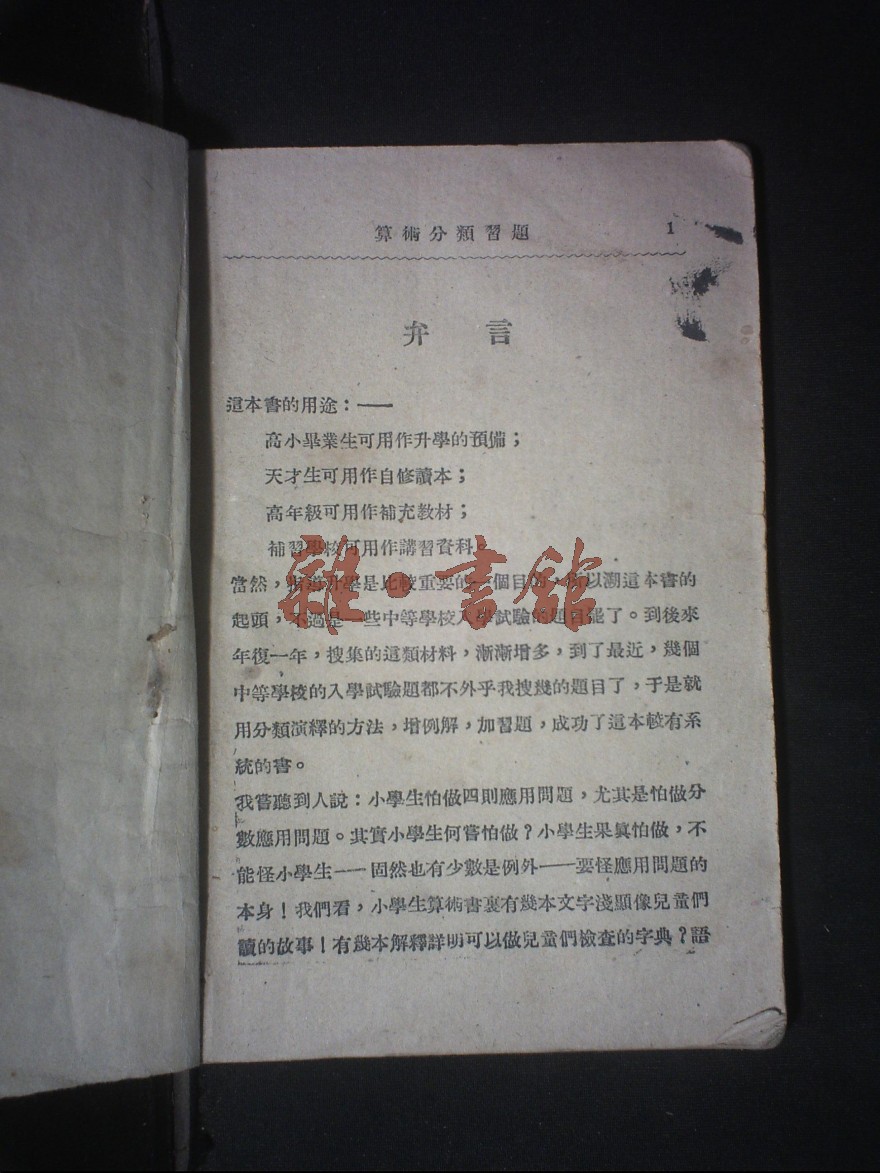 算術分類習題 1
弁言
這本書的用途：——
高小畢業生可用作升學的預備；
天才生可用作自修讀本；
高年級可用作補充教材；
補習學校可用作講習資料。
當然，指導升學是比較重要的一個目的，所以溯這本書的
起頭，不過是一些中等學校入學試驗的題目罷了。到後來
年復一年，搜集的這類材料，漸漸增多，到了最近，幾個
中等學校的入學試驗題都不外乎我搜幾的題目了，于是就
用分類演繹的方法，增例解，加習題，成功了這本較有系
統的書。
我嘗聽到人說：小學生怕做四則應用問題，尤其是怕做分
數應用問題。其實小學生何嘗怕做？小學生果眞怕做，不
能怪小學生——固然也有少數是例外——要怪應用問題的
本身！我們看，小學生算術書裏有幾本文字淺顯像兒童們
讀的故事！有幾本解釋詳明可以做兒童們檢查的字典？語
雜·書館